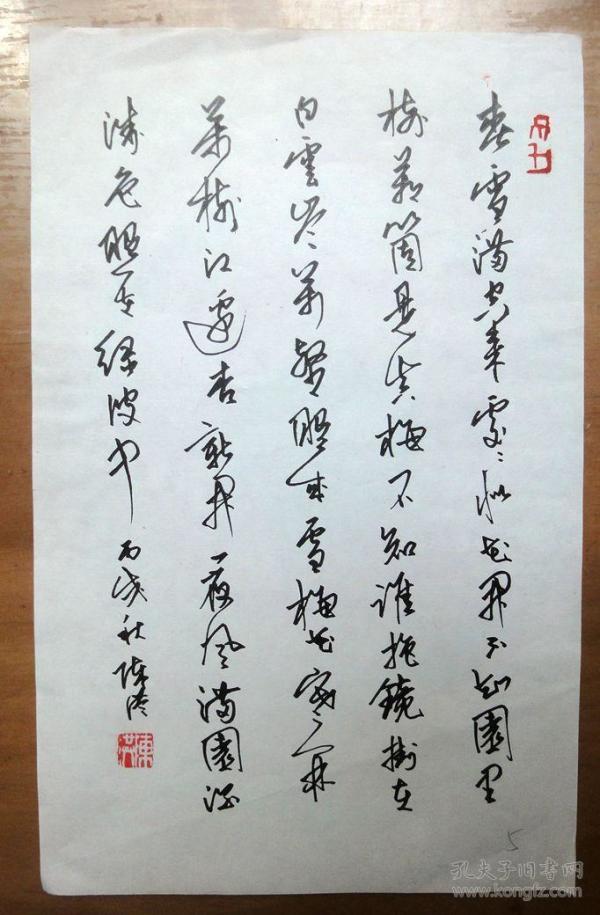 春雪滿空來處處似花開不知園里
樹若箇是真梅不知誰把鏡掛在
白雲岑萬壑照成雪梅花寒林
萬樹江邊杏新開一夜風滿園深
淺色照在綠波中 丙戌秋 陳洪
5
孔夫子旧书网
www.kongfz.com